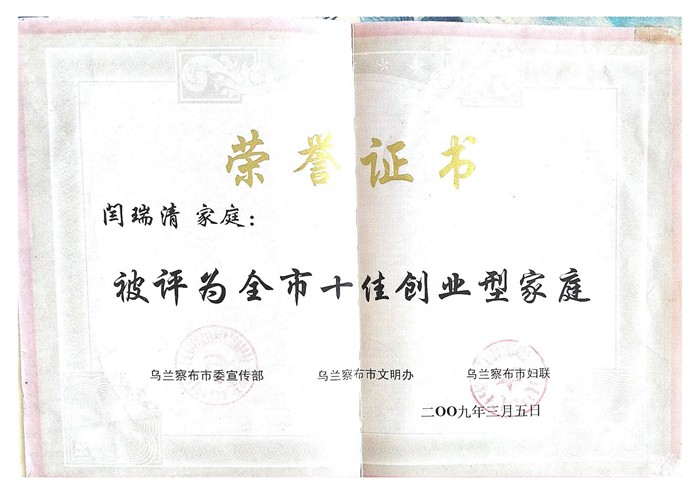 荣誉证书
闫瑞清 家庭：
被评为全市十佳创业型家庭
乌兰察布市委宣传部 乌兰察布市文明办 乌兰察布市妇联
二〇〇九年三月五日